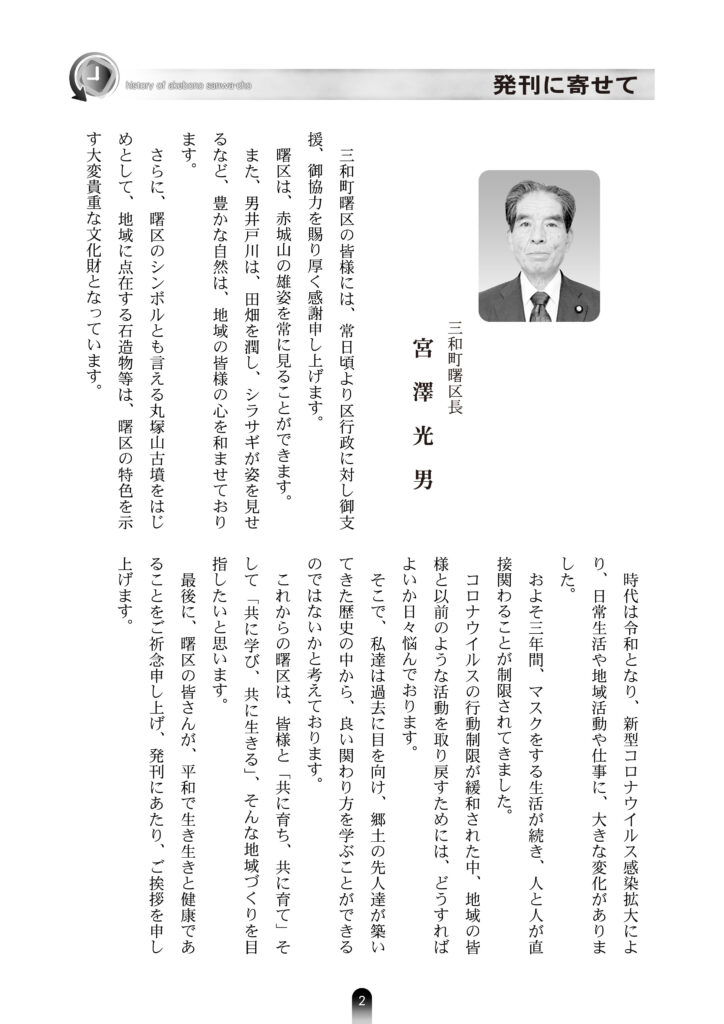 history of akebono sanwa-cho
発刊に寄せて
三和町曙区長
宮澤光男
三和町曙区の皆様には、常日頃より区行政に対し御支
援、御協力を賜り厚く感謝申し上げます。
曙区は、赤城山の雄姿を常に見ることができます。
また、男井戸川は、田畑を潤し、シラサギが姿を見せ
るなど、豊かな自然は、地域の皆様の心を和ませており
ます。
さらに、曙区のシンボルとも言える丸塚山古墳をはじ
めとして、地域に点在する石造物等は、曙区の特色を示
す大変貴重な文化財となっています。
時代は令和となり、新型コロナウイルス感染拡大によ
り、日常生活や地域活動や仕事に、大きな変化がありま
した。
およそ三年間、マスクをする生活が続き、人と人が直
接関わることが制限されてきました。
コロナウイルスの行動制限が緩和された中、地域の皆
様と以前のような活動を取り戻すためには、どうすれば
よいか日々悩んでおります。
そこで、私達は過去に目を向け、郷土の先人達が築い
てきた歴史の中から、良い関わり方を学ぶことができる
のではないかと考えております。
これからの曙区は、皆様と「共に育ち、共に育て」そ
して「共に学び、共に生きる」、そんな地域づくりを目
指したいと思います。
最後に、曙区の皆さんが、平和で生き生きと健康であ
ることをご祈念申し上げ、発刊にあたり、ご挨拶を申し
上げます。
2